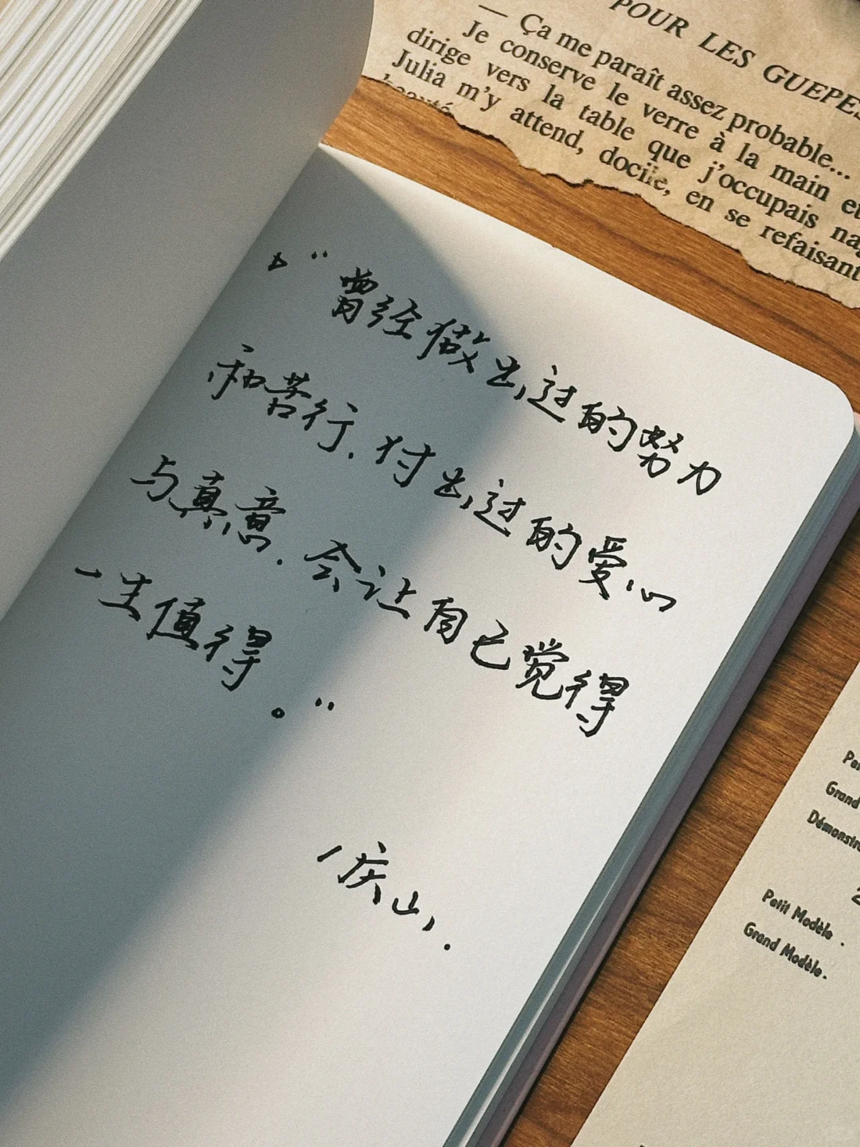 POUR LES GUEPES
— Ça me paraît assez probable...
Je conserve le verre à la main et
dirige vers la table que j'occupais
Julia m'y attend, docile, en se refaisant
▷ "曾经做出过的努力
和苦行.付出过的爱心
与真意.会让自己觉得
一生值得。"
/庆山.
Grand
Petit Modèle.
Grand Modèle.